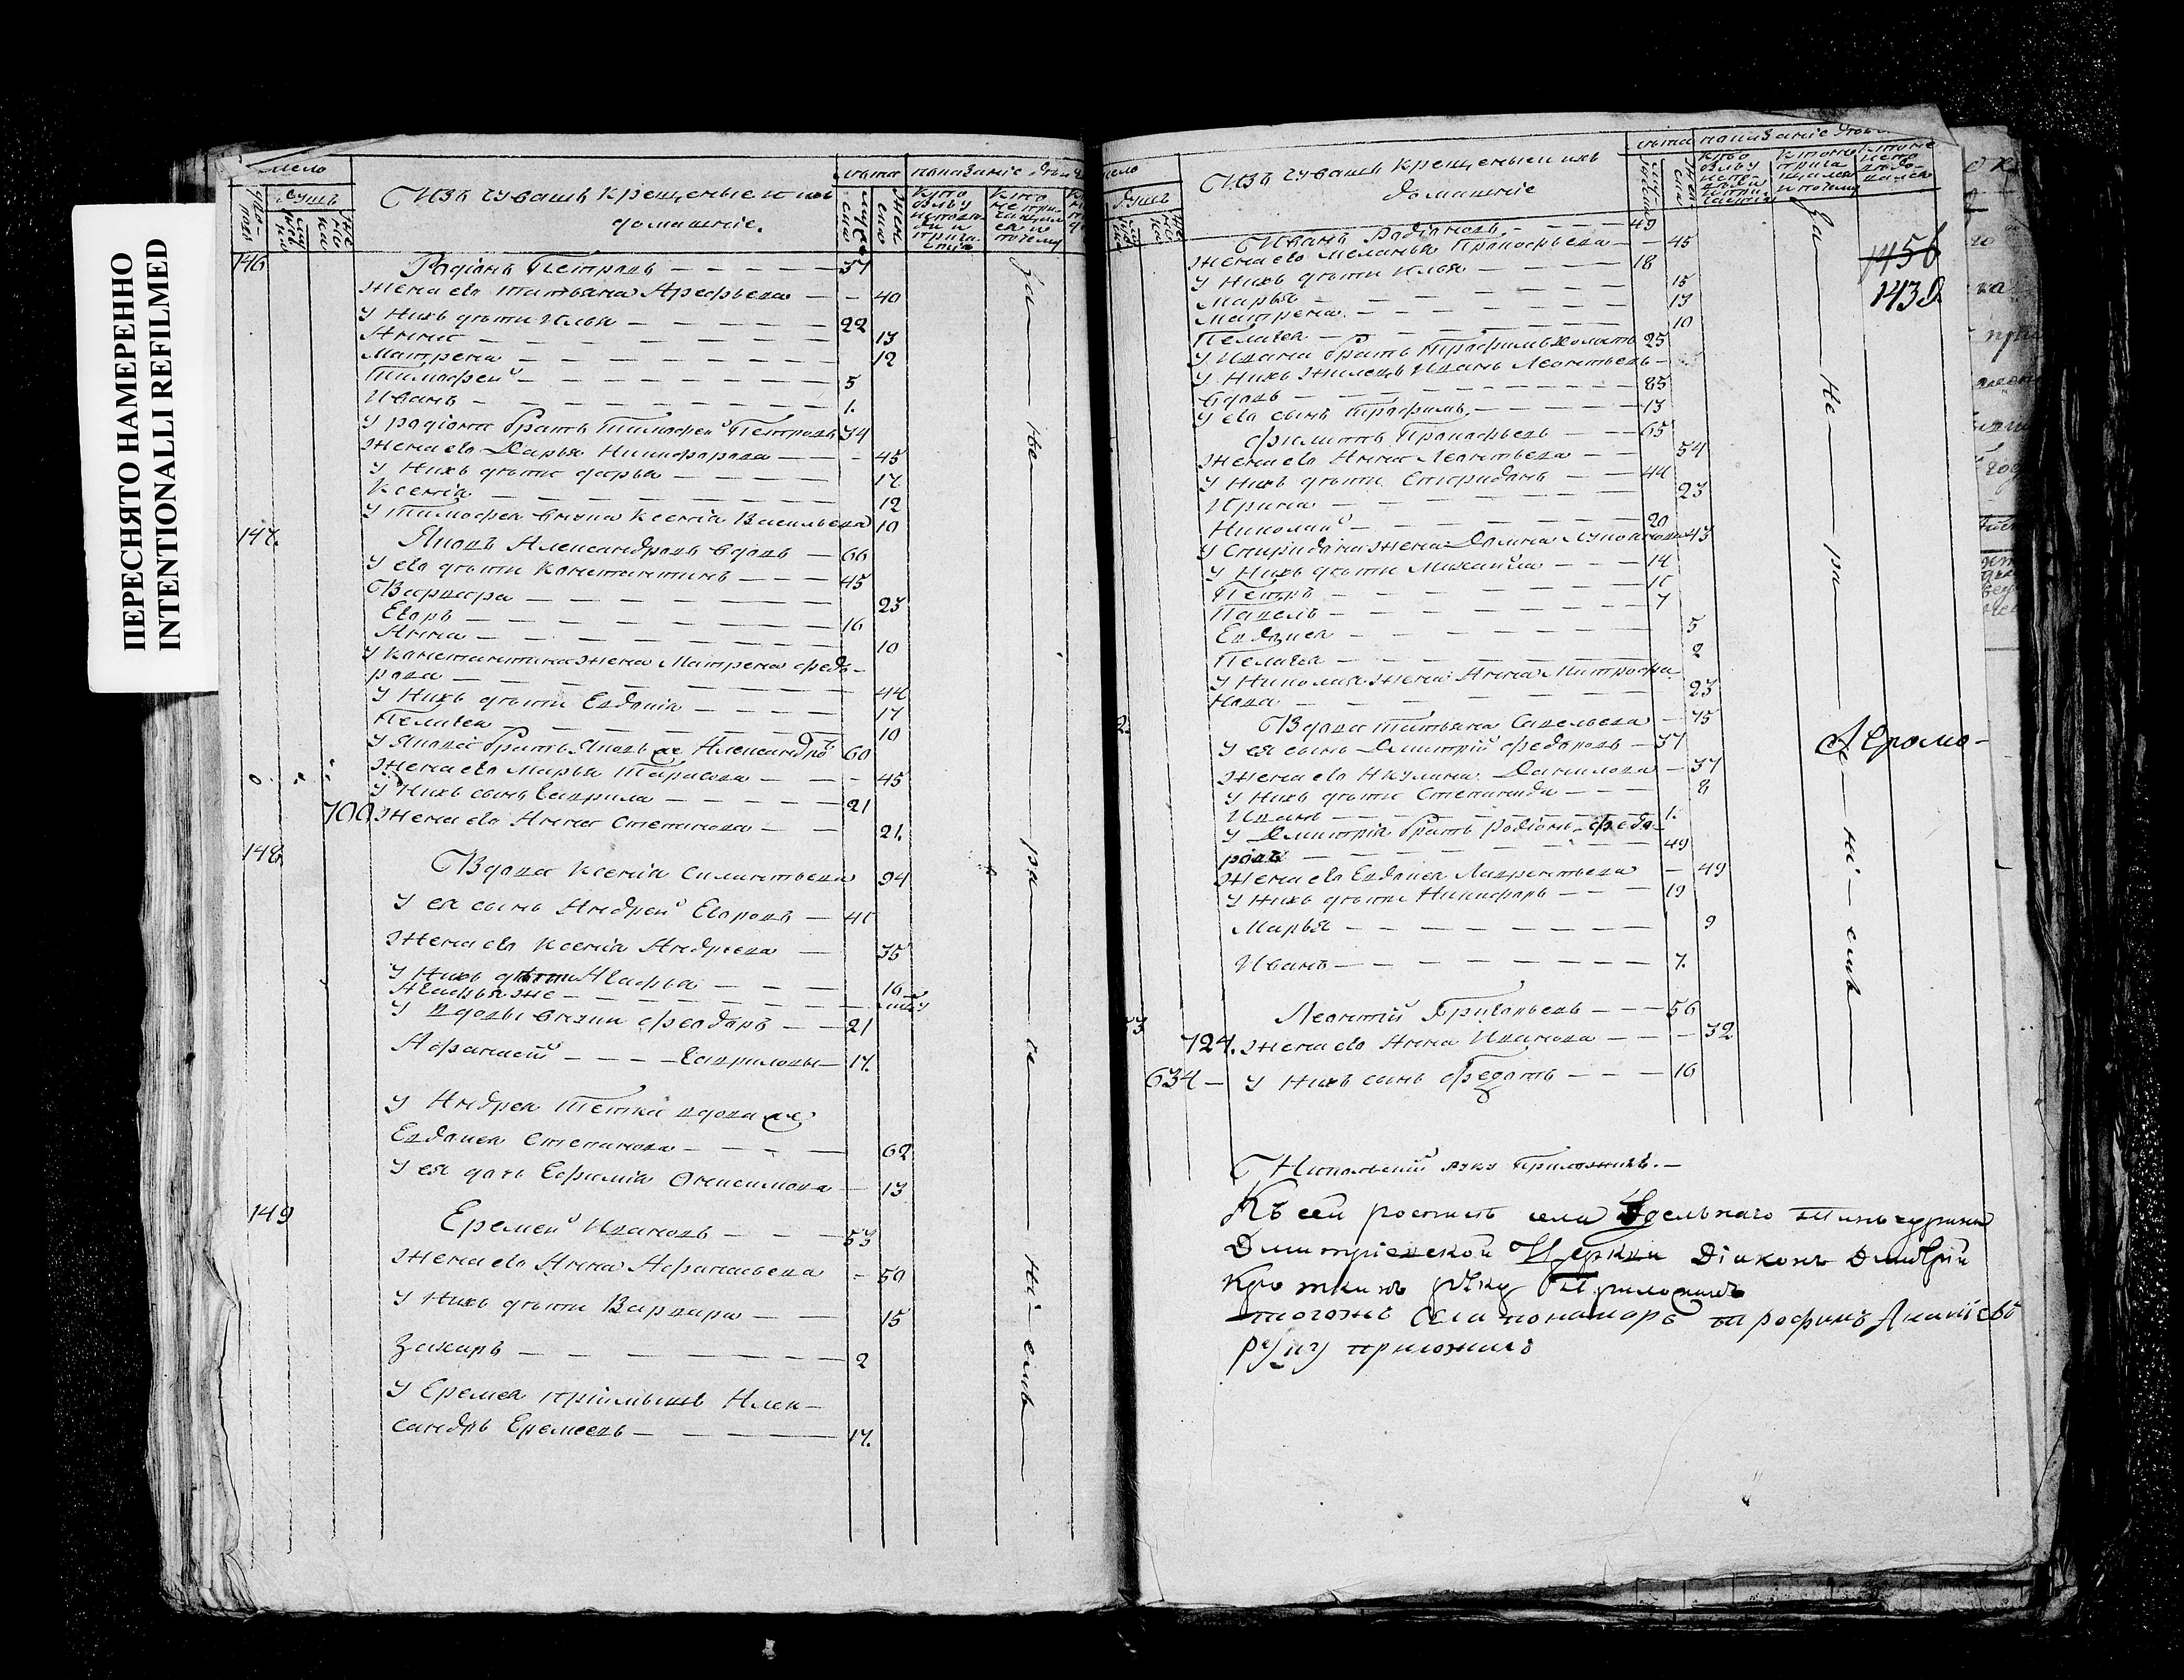 ПЕРЕСНЯТО НАМЕРЕННО
INTENTIONALLI REFILMED
Изъ чувашъ крещеные и ихъ
домашніе.
146 Радіонъ Петровъ 37
Жена ево Татьяна Арефьева 40
У нихъ дѣти Илья 22
Анна 13
Матрена 12
Тимофей 5
Иванъ 1.
У Радіона братъ Тимофей Петровъ 34
Жена ево Дарья Никифорова 45
У нихъ дѣти Дарья 17
Ксенія 12
У Тимофея внука Ксенія Васильева 10
147. Яковъ Александровъ вдовъ 66
У ево дѣти Констинтинъ 45
Варвара 23
Егоръ 16
Анна 10
У Констинтина жена Матрена Федо-
рова 44
У нихъ дѣти Евдокія 17
Пелагея 10
У Якова братъ Яковъ же Александро 60
Жена ево Марья Тарасова 45
У нихъ сынъ Гаврила 21
700 Жена ево Анна Степанова 21.
148. Вдова Ксенія Силантьева 94
У ея сынъ Андрей Егоровъ 41
Жена ево Ксенія Андреева 35
У нихъ дѣти Агафья 10
Агафья же
У вдовы внуки Феодоръ 21
Афанасей Гавриловы 17.
У Андрея тетка вдова же
Евдокея Степанова 62
У ея дочь Ефимія Онисимова 13
149 Еремей Ивановъ 53
Жена ево Анна Афанасьева 50
У нихъ дѣти Варвара 15
Захаръ 2
У Еремея пріимышъ Алек-
сандръ Еремеевъ 17.
За не ра де ні емъ
Изъ чувашъ крещеныеи ихъ
домашніе
1456
1438
Иванъ Радіоновъ 49
Жена ево Меланья Прокофьева 45
У нихъ дѣти Илья 18
Марья 15
Матрена 13
Пелагея 10
У Ивана братъ Трофимъ холостъ 25
У нихъ жилецъ Иванъ Леонтьевъ
вдовъ 85
У ево сынъ Трофимъ 13
Филиппъ Прокофьевъ 65
Жена ево Анна Леонтьева 54
У нихъ дѣти Спиридонъ 44
Ирина 23
Николай 20
У Спиридона жена Домна 43
У нихъ дѣти Михайла 14
Петръ 11
Павелъ 7
Евдокея 5
Пелагея 2
У Николая жена Анна Митрофа
нова 23
2. Вдова Татьяна Савельева 75
У ея сынъ Дмитрій Федоровъ 37
Жена ево Акулина Данилова 37
У нихъ дѣти Степанида 8
Иванъ 1.
У Дмитрія братъ Радіонъ Федо-
ровъ 49
Жена ево Евдокея Лаврентьева 49
У нихъ дѣти Никифоръ 19
Марья 9
Иванъ 7.
53 Леонтій Григорьевъ 56
724. Жена ево Анна Иванова 32
634 У нихъ сынъ Федотъ 16
За не ра де ні емъ
Никольскій руку приложилъ.
Къ сей росписи села Удельнаго Тинчурина
Дмитріевской Церкви Діаконъ Дмитрій
Кроткинъ руку приложилъ
тогожъ села пономарь Трофимъ
руку приложилъ